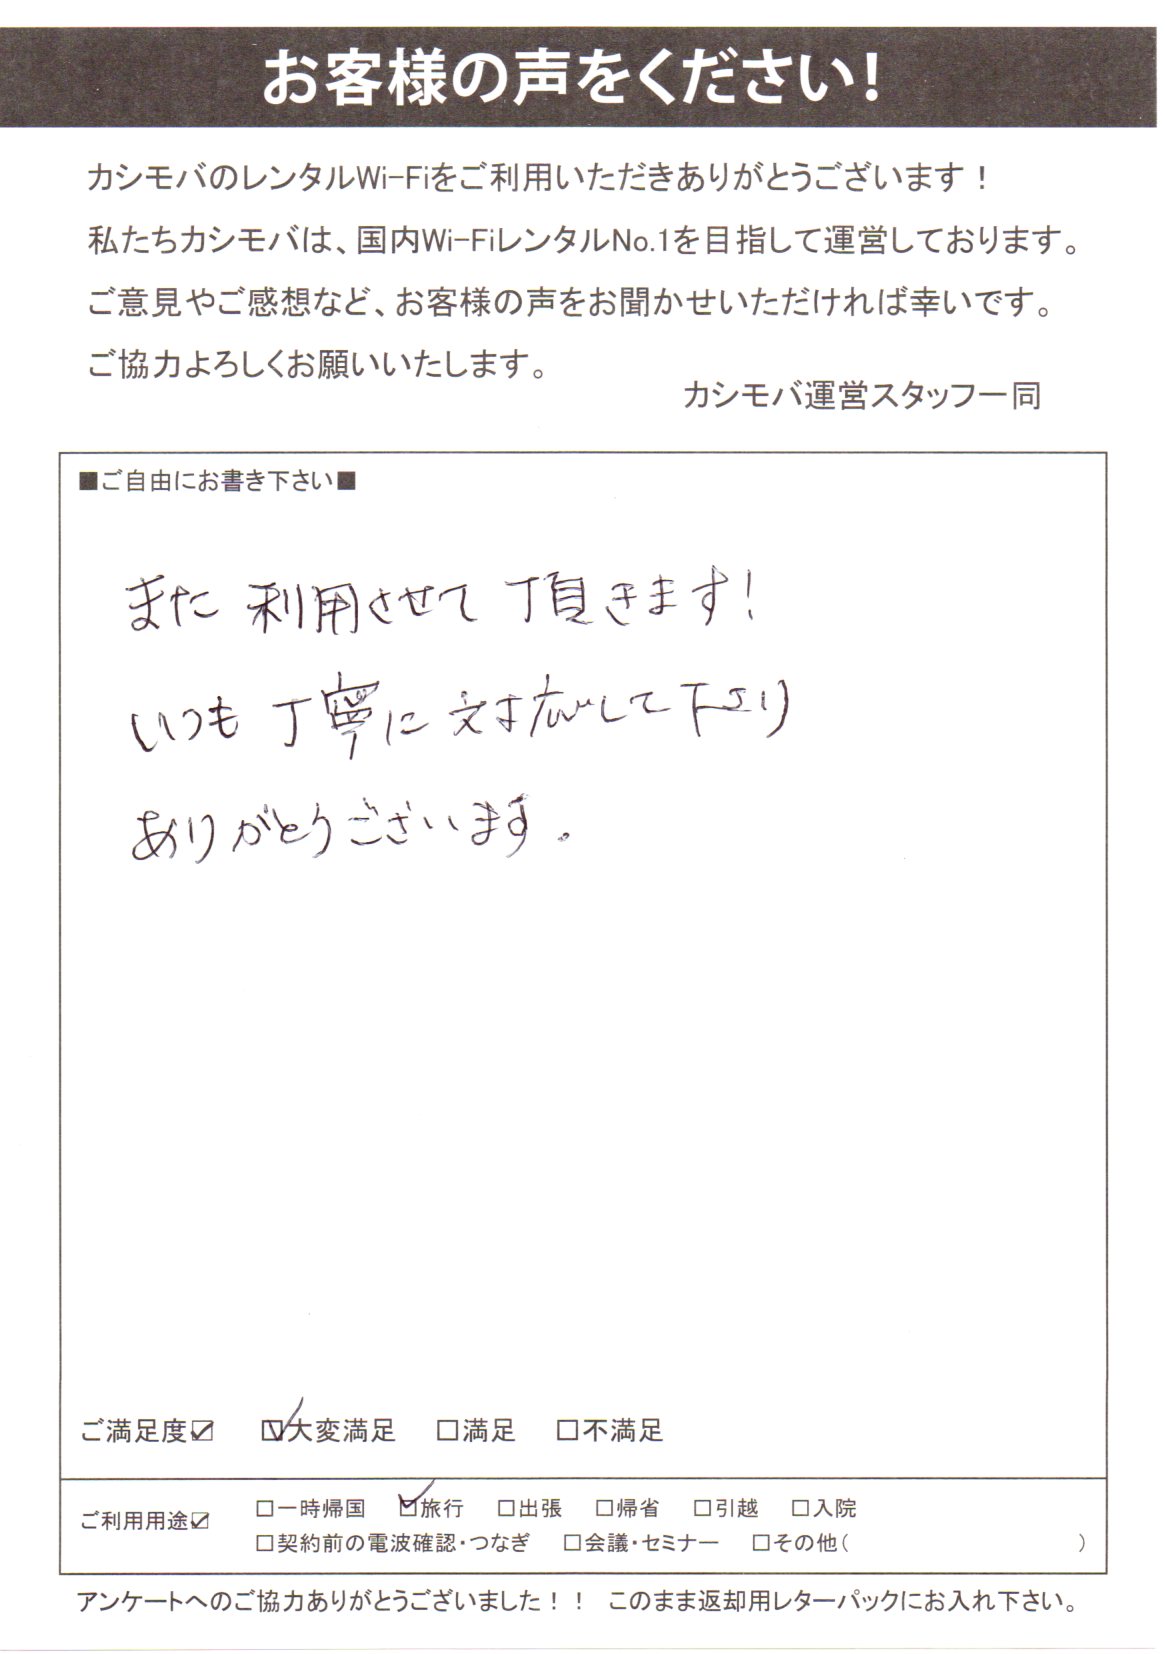 お客様の声をください！
カシモバのレンタルWi-Fiをご利用いただきありがとうございます！
私たちカシモバは、国内Wi-FiレンタルNo.1を目指して運営しております。
ご意見やご感想など、お客様の声をお聞かせいただければ幸いです。
ご協力よろしくお願いいたします。
カシモバ運営スタッフ一同
■ご自由にお書き下さい■
また 利用させて 頂きます!
いつも 丁寧に 対応して 下さり
ありがとうございます.
ご満足度☑ ☑大変満足 □満足 □不満足
ご利用用途☑ □一時帰国 ☑旅行 □出張 □帰省 □引越 □入院
□契約前の電波確認・つなぎ □会議・セミナー □その他( )
アンケートへのご協力ありがとうございました！！ このまま返却用レターパックにお入れ下さい。